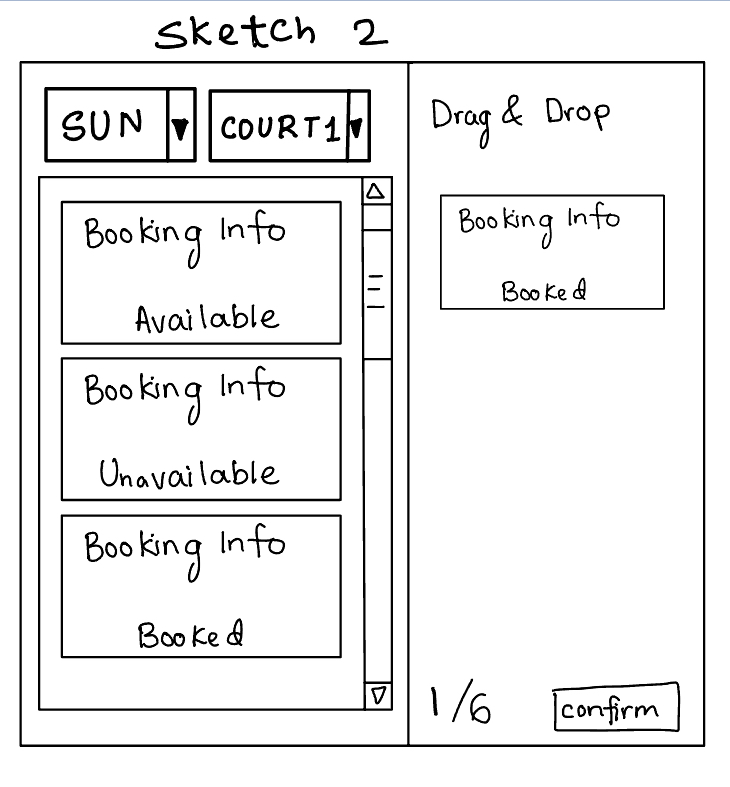 Sketch 2
SUN
COURT1
Booking Info
Available
Booking Info
Unavailable
Booking Info
Booked
Drag & Drop
Booking Info
Booked
1/6
confirm